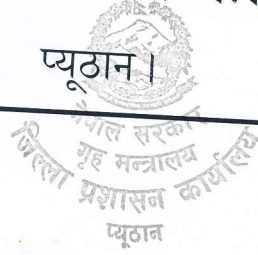 प्यूठान ।
नेपाल सरकार
गृह मन्त्रालय
जिल्ला प्रशासन कार्यालय
प्यूठान